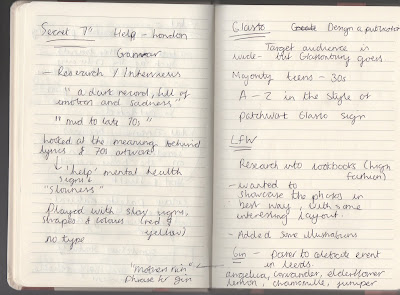 Secret 7" Help - London
Grammar
- Research / Interviews
"a dark record, full of
emotion and sadness"
"mid to late 70s"
looked at the meaning behind
lyrics & 70s artwork
↳ 'help' mental health
signs
"slowness"
Played with slow signs,
shapes & colours (red &
yellow)
no type
Glasto Create Design a publication
Target audience is
wide - but Glastonbury goers
Majority teens - 30s
A - Z in the style of
patchwork Glasto sign
LFW
Research into lookbooks (high
fashion)
- wanted to
showcase the photos in
best way, with some
interesting layout.
- Added some illustrations
Gin - Poster to celebrate event
in Leeds.
angelica, coriander, elderflower
lemon, chamomile, juniper
"mother's ruin"
phrase for gin